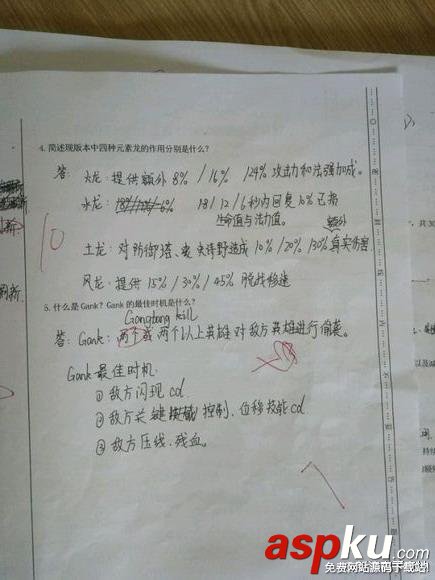 4. 简述现版本中四种元素龙的作用分别是什么？
答： 火龙：提供额外 8% / 16% / 24% 攻击力和法强加成。
水龙： 18 / 12 / 6 秒内回复 10% 已损
生命值与法力值。
额外
10
土龙：对防御塔、史诗野怪造成 10% / 20% / 30% 真实伤害
风龙：提供 15% / 30% / 45% 脱战移速
5. 什么是 Gank？Gank 的最佳时机是什么？
Gangbang kill
答：Gank：两个或 两个以上英雄对敌方英雄进行偷袭。
Gank最佳时机
①敌方闪现cd.
②敌方关键 控制、位移技能cd
③敌方压线、残血。
刷新
aspku.com
免费网站源码下载站!